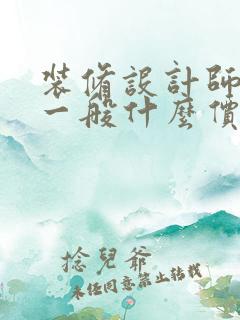 裝脩設計師
一般什麼價
捻兒爺
未經同意禁止轉載